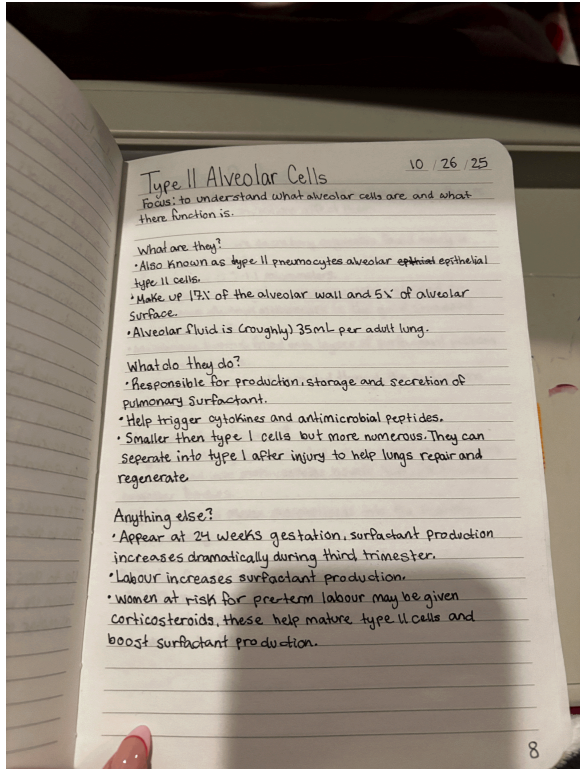 Type II Alveolar Cells
10 / 26 / 25
Focus: to understand what alveolar cells are and what
there function is.
What are they?
• Also known as type II pneumocytes alveolar epithelial
type II cells.
• Make up 17% of the alveolar wall and 5% of alveolar
surface.
• Alveolar fluid is (roughly) 35mL per adult lung.
What do they do?
• Responsible for production, storage and secretion of
pulmonary surfactant.
• Help trigger cytokines and antimicrobial peptides.
• Smaller then type I cells but more numerous. They can
seperate into type I after injury to help lungs repair and
regenerate.
Anything else?
• Appear at 24 weeks gestation, surfactant production
increases dramatically during third trimester.
• Labour increases surfactant production.
• Women at risk for pre-term labour may be given
corticosteroids, these help mature type II cells and
boost surfactant production.
8